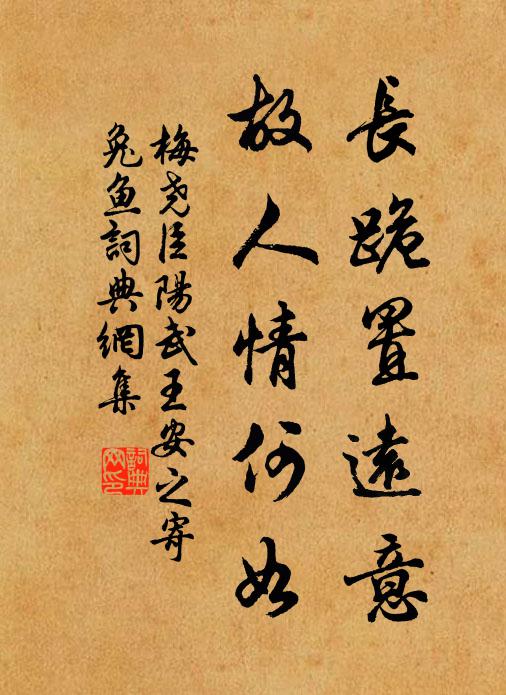 長跪置遠意
故人情何如
梅堯臣陽武王安之寄
兔魚詞典網集
詞典網印